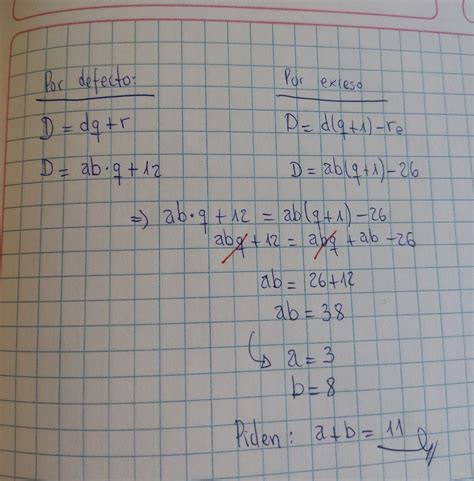 Por defecto:
D = dq + r
D = ab · q + 12
Por exceso
D = d(q+1) - re
D = ab(q+1) - 26
=> ab · q + 12 = ab(q+1) - 26
abq + 12 = abq + ab - 26
ab = 26 + 12
ab = 38
a = 3
b = 8
Piden: a + b = 11